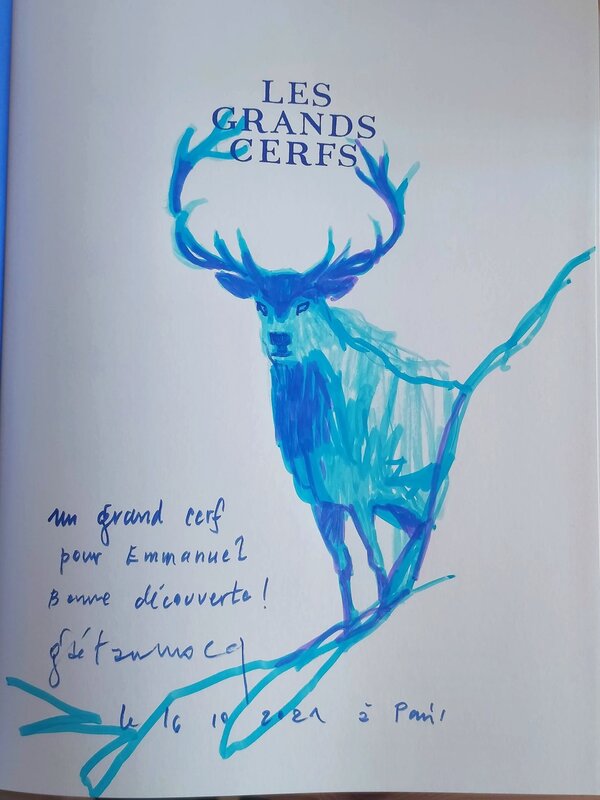 LES
GRANDS
CERFS
un grand cerf
pour Emmanuel
Bonne découverte !
gaétannocq
le 16 10 2021 à Paris